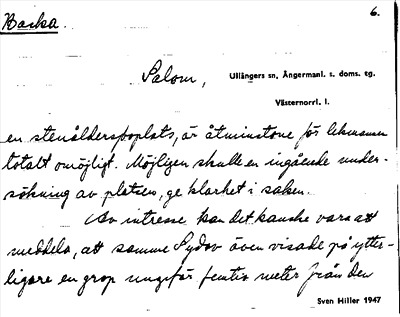 Backa.
6.
Salom,
Ullångers sn, Ångermanl. s. doms. tg.
Västernorrl. l.
en stenåldersboplats, är åtminstone för lekmannen
totalt omöjligt. Möjligen skulle en ingående under-
sökning av platsen, ge klarhet i saken.
Av intresse kan det kanske vara att
meddela, att samme Sydov även visade på ytter-
ligare en grop ungefär femtio meter från den
Sven Hiller 1947